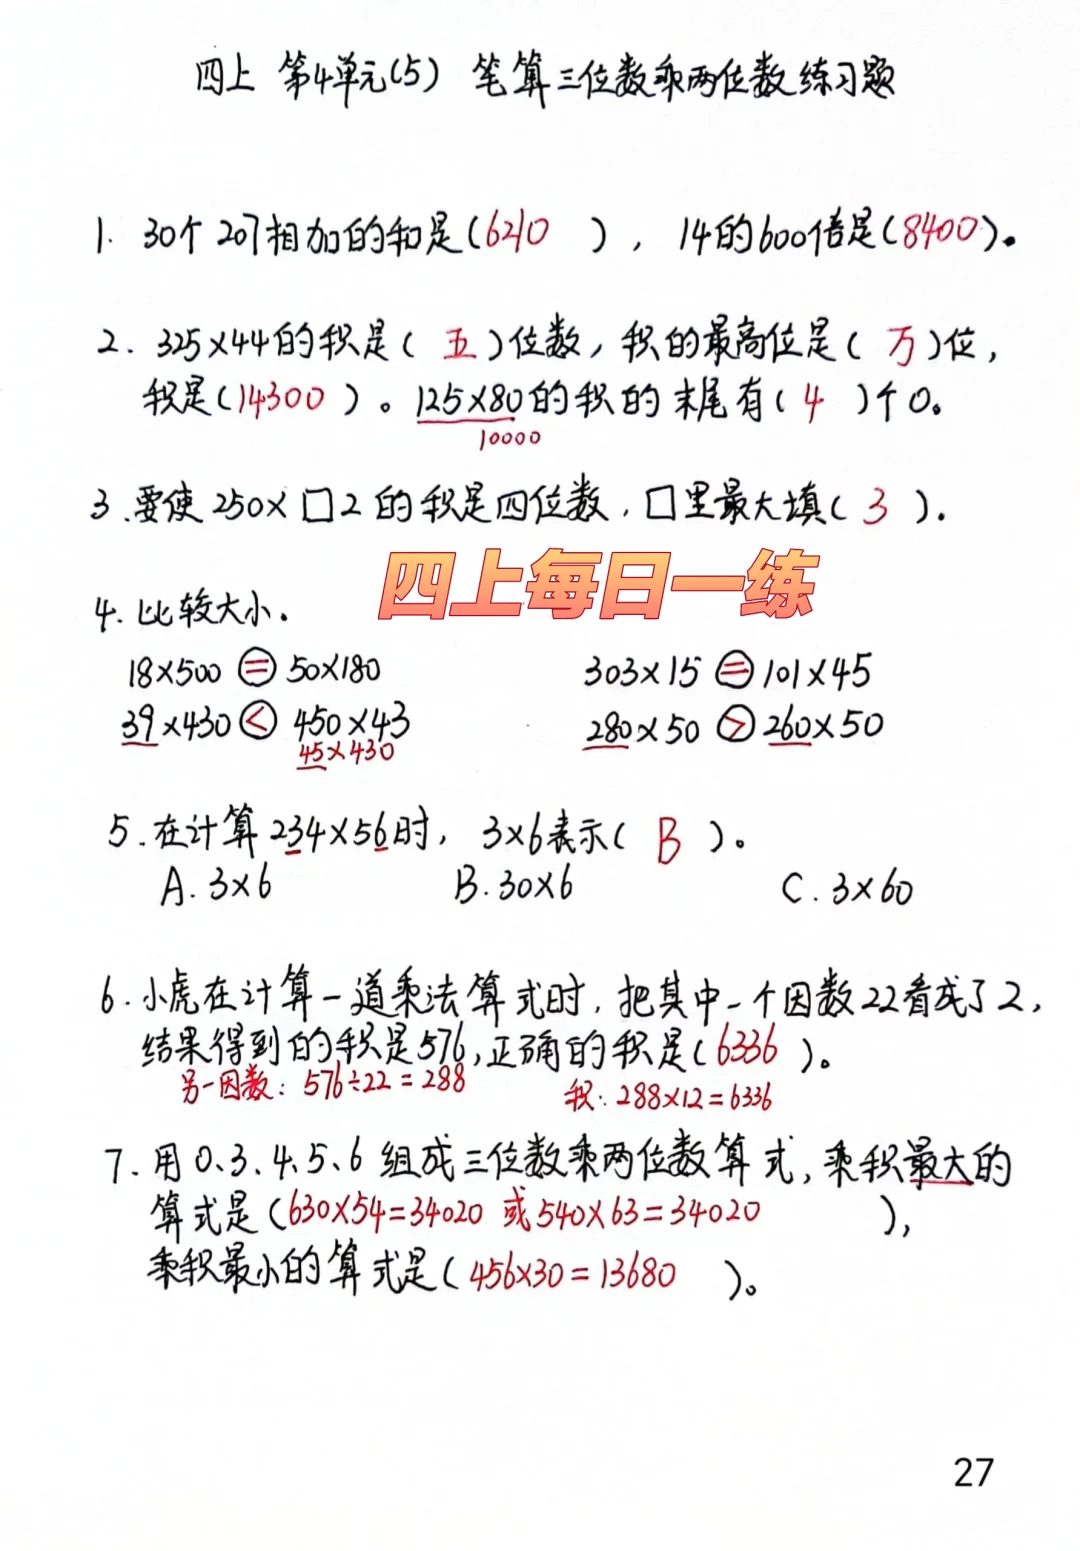 四上 第4单元(5) 笔算三位数乘两位数练习题
1. 30个207相加的和是(6210 ), 14的600倍是(8400)。
2. 325×44的积是( 五 )位数, 积的最高位是( 万 )位,
积是(14300 )。125×80的积的末尾有( 4 )个0。
10000
3.要使250×□2的积是四位数,□里最大填( 3 ).
四上每日一练
4.比较大小。
18×500 = 50×180 303×15 = 101×45
39×430 < 450×43 280×50 > 260×50
45×430
5.在计算234×56时, 3×6表示( B )。
A. 3×6 B. 30×6 C. 3×60
6.小虎在计算一道乘法算式时,把其中一个因数22看成了2,
结果得到的积是576,正确的积是(6336 )。
另一因数: 576÷22=288 积: 288×12=6336
7.用0、3、4、5、6 组成三位数乘两位数算式,乘积最大的
算式是(630×54=34020 或540×63=34020 ),
乘积最小的算式是( 456×30=13680 )。
27